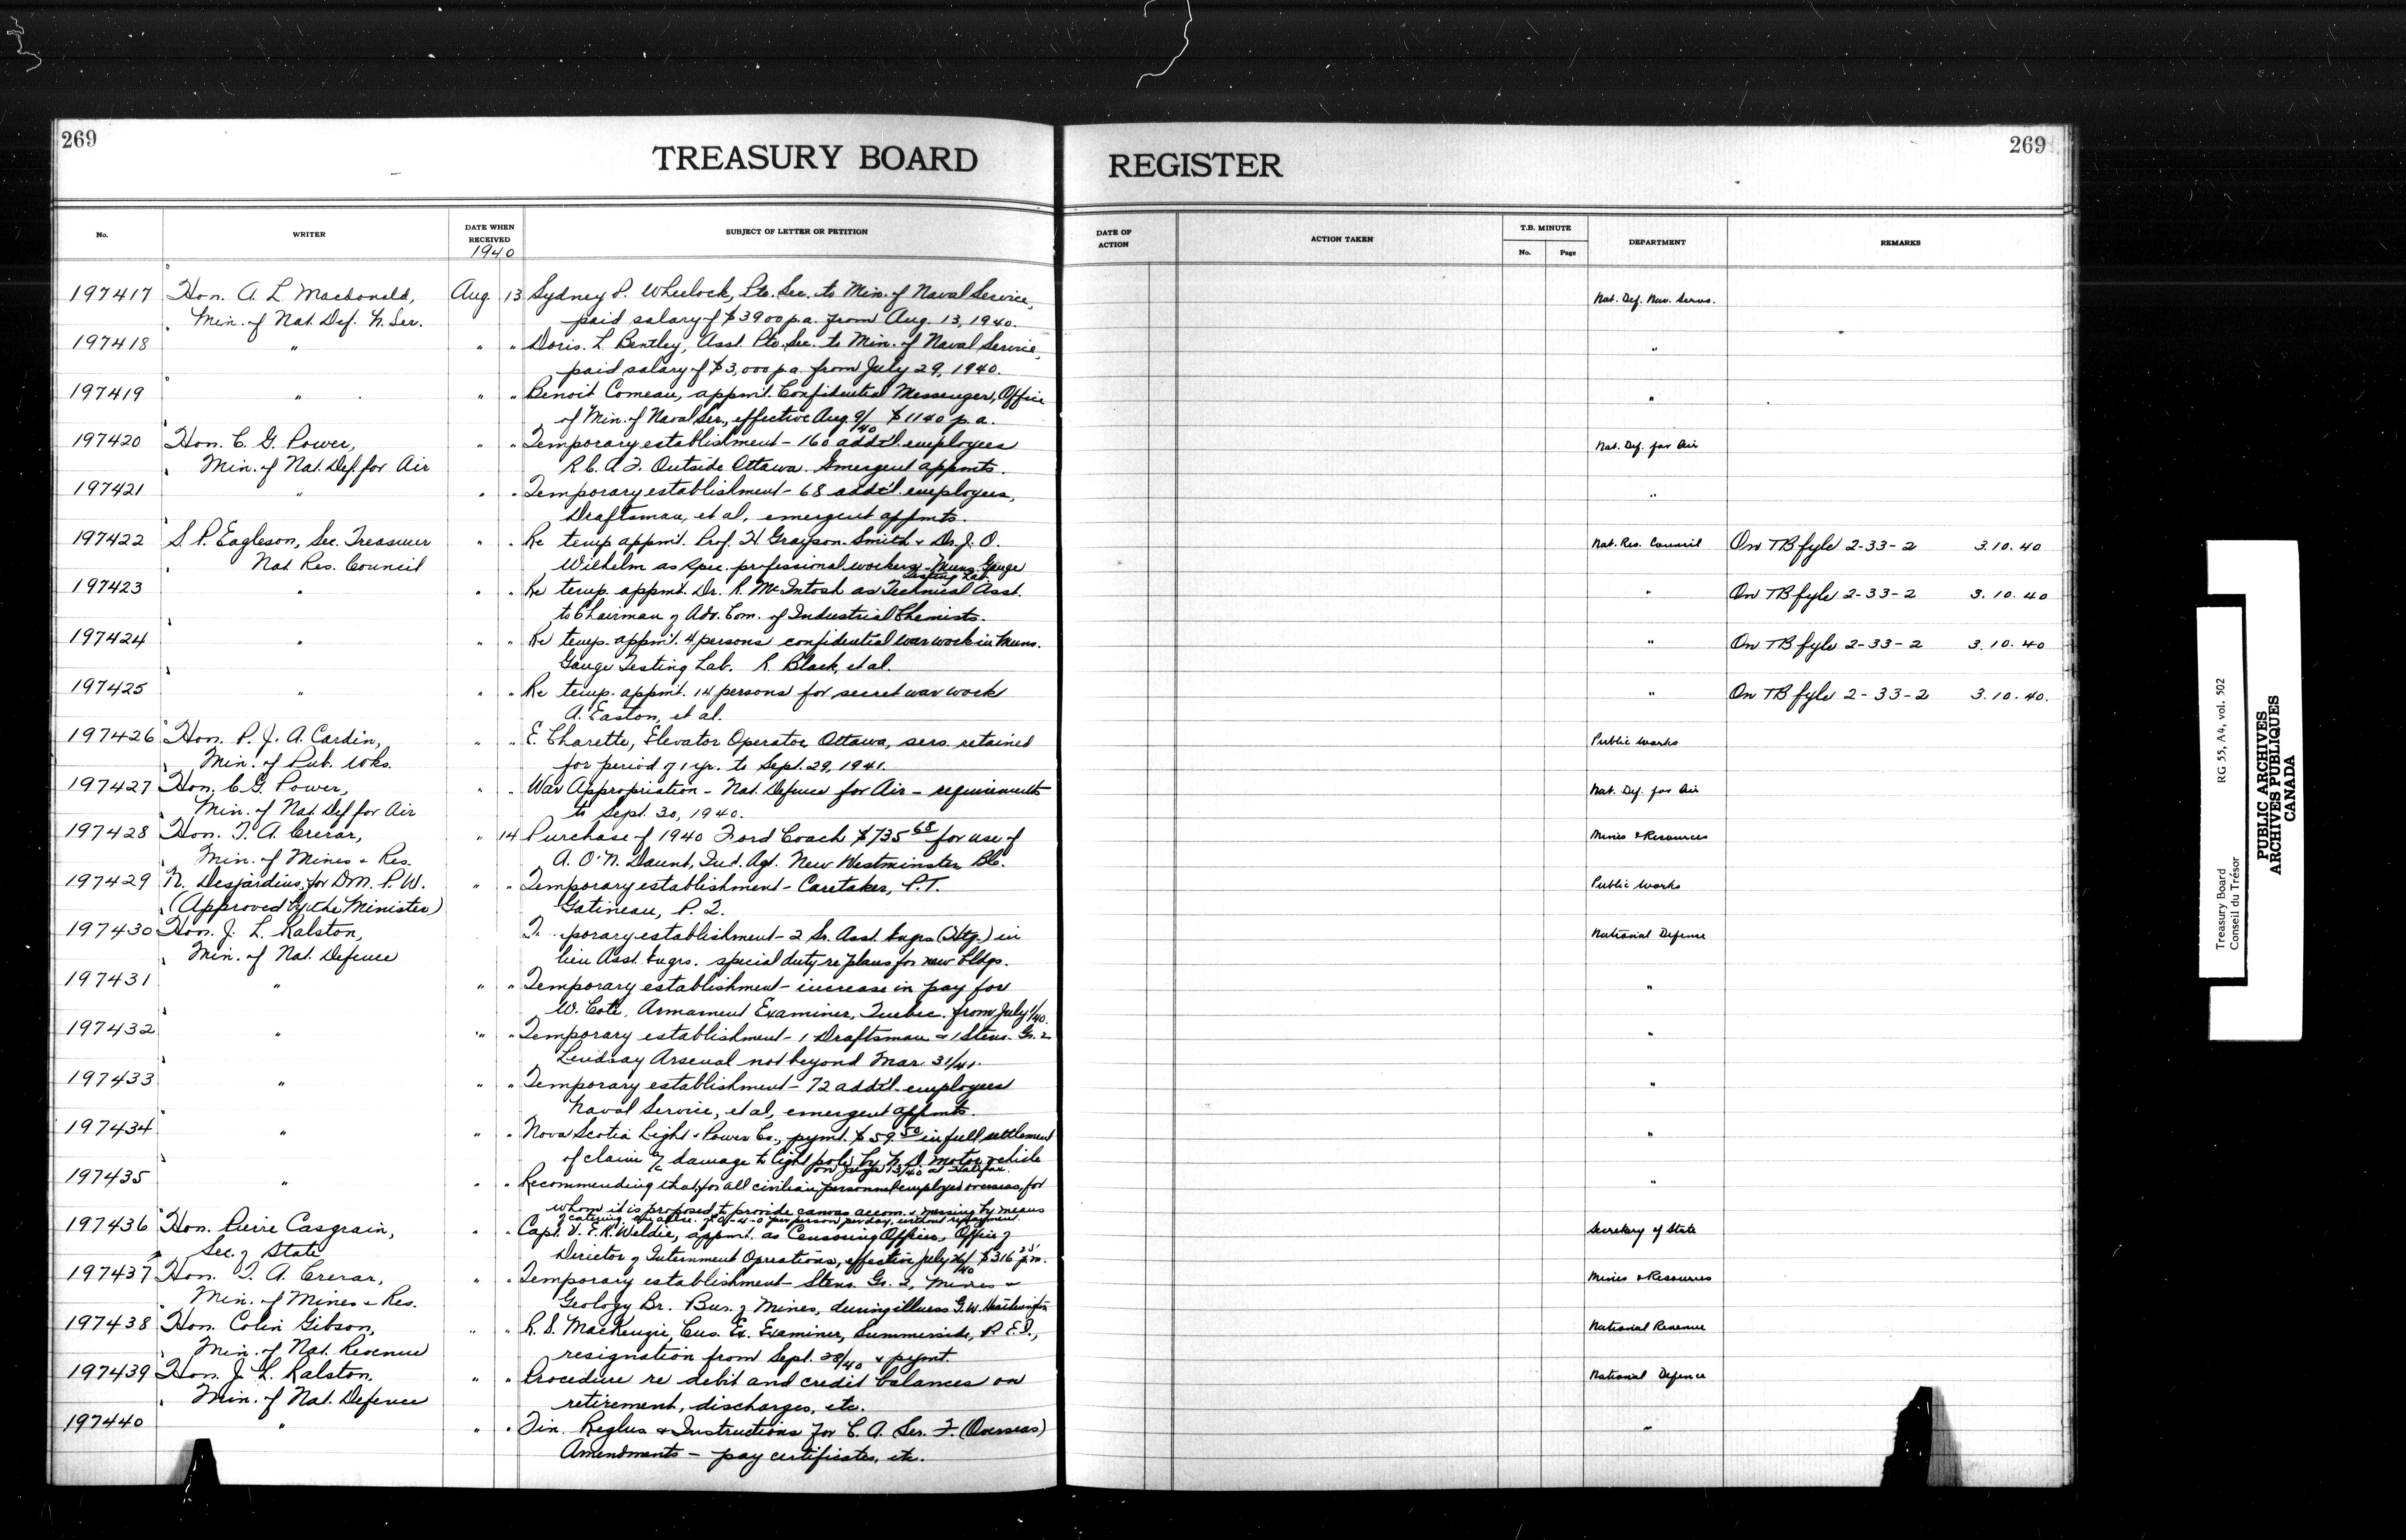 269
269
TREASURY BOARD
REGISTER
No.
WRITER
DATE WHEN RECEIVED
1940
SUBJECT OF LETTER OR PETITION
DATE OF ACTION
ACTION TAKEN
T.B. MINUTE
No.
Page
DEPARTMENT
REMARKS
197417 Hon. A. L. Macdonald, Aug. 13 Sydney P. Wheelock, Pte. Sec. to Min. of Naval Service, Nat. Def. Nav. Servs.
Min. of Nat. Def. N. Ser. paid salary of $3900 p.a. from Aug. 13, 1940.
197418 " " " Doris. L. Bentley, Asst. Pte. Sec. to Min. of Naval Service, "
paid salary of $3,000 p.a. from July 29, 1940.
197419 " " " Benoit Comeau, appm't. Confidential Messenger, Office "
of Min. of Naval Ser., effective Aug 9/40 $1140 p.a.
197420 Hon. C. G. Power, " " Temporary establishment - 160 addt'l. employees Nat. Def. for Air
Min. of Nat. Def. for Air R.C.A.F. Outside Ottawa. Emergent appmts.
197421 " " " Temporary establishment - 68 addt'l. employees, "
Draftsman, et al, emergent appmts.
197422 S. P. Eagleson, Sec. Treasurer " " Re temp. appm't. Prof. H. Grayson-Smith & Dr. J. O. Nat. Res. Council On TB fyle 2-33-2 3.10.40
Nat. Res. Council Wilhelm as spec. professional workers - Muns. Gauge
Testing Lab.
197423 " " " Re temp. appm't. Dr. R. McIntosh as Technical Asst. " On TB fyle 2-33-2 3.10.40
to Chairman of Adv. Com. of Industrial Chemists.
197424 " " " Re temp. appm't. 4 persons confidential war work in Muns. " On TB fyle 2-33-2 3.10.40
Gauge Testing Lab. R. Black, et al.
197425 " " " Re temp. appm't. 14 persons for secret war work " On TB fyle 2-33-2 3.10.40.
A. Easton, et al.
197426 Hon. P. J. A. Cardin, " " E. Charette, Elevator Operator Ottawa, sers. retained Public Works
Min. of Pub. Wks. for period of 1 yr. to Sept. 29, 1941.
197427 Hon. C. G. Power, " " War Appropriation - Nat. Defence for Air - requirements Nat. Def. for Air
Min. of Nat. Def for Air to Sept. 30, 1940.
197428 Hon. T. A. Crerar, " 14 Purchase of 1940 Ford Coach $735.68 for use of Mines & Resources
Min. of Mines & Res. A. O'N. Daunt, Ind. Agt. New Westminster B.C.
197429 N. Desjardins, for D.M. P.W. " " Temporary establishment - Caretaker, P.T. Public Works
(Approved by the Minister) Gatineau, P. Q.
197430 Hon. J. L. Ralston, T porary establishment - 2 Sr. Asst. Engrs (Htg.) in National Defence
Min. of Nat. Defence lieu Asst. Engrs. special duty re plans for new bldgs.
197431 " " " Temporary establishment - increase in pay for "
W. Cote, Armament Examiner, Quebec. from July 1/40.
197432 " " " Temporary establishment - 1 Draftsman & 1 Steno. Gr. 2 "
Lindsay Arsenal not beyond Mar. 31/41.
197433 " " " Temporary establishment - 72 addt'l. employees "
Naval Service, et al, emergent appmts.
197434 " " " Nova Scotia Light & Power Co., pymt. $59.50 in full settlement "
of claim a/c damage to light pole by N. D. motor vehicle
at Halifax.
197435 " " " Recommending that, for all civilian personnel employed overseas, for "
whom it is proposed to provide canvas accom. & messing by means
of catering, per person per day, without repayment.
197436 Hon. Pierre Casgrain, " " Capt. V. E. R. Weldie, appmt. as Censoring Officer, Office of Secretary of State
Sec. of State Director of Internment Operations, effective July $316.25 p.m.
197437 Hon. T. A. Crerar, " " Temporary establishment - Steno. Gr. 2, Mines & Mines & Resources
Min. of Mines & Res. Geology Br. Bur. of Mines, during illness G. W. Heatherington
197438 Hon. Colin Gibson, " " R. S. MacKenzie, Cus. Ex. Examiner, Summerside, P.E.I., National Revenue
Min. of Nat. Revenue resignation from Sept. 28/40 & pymt.
197439 Hon. J. L. Ralston, " " Procedure re debit and credit balances on National Defence
Min. of Nat. Defence retirement, discharges, etc.
197440 " " " Fin. Reglns & Instructions for C. A. Ser. F. (Overseas) "
Amendments - pay certificates, etc.
Treasury Board RG 55, A4, vol. 502
Conseil du Trésor
PUBLIC ARCHIVES
ARCHIVES PUBLIQUES
CANADA